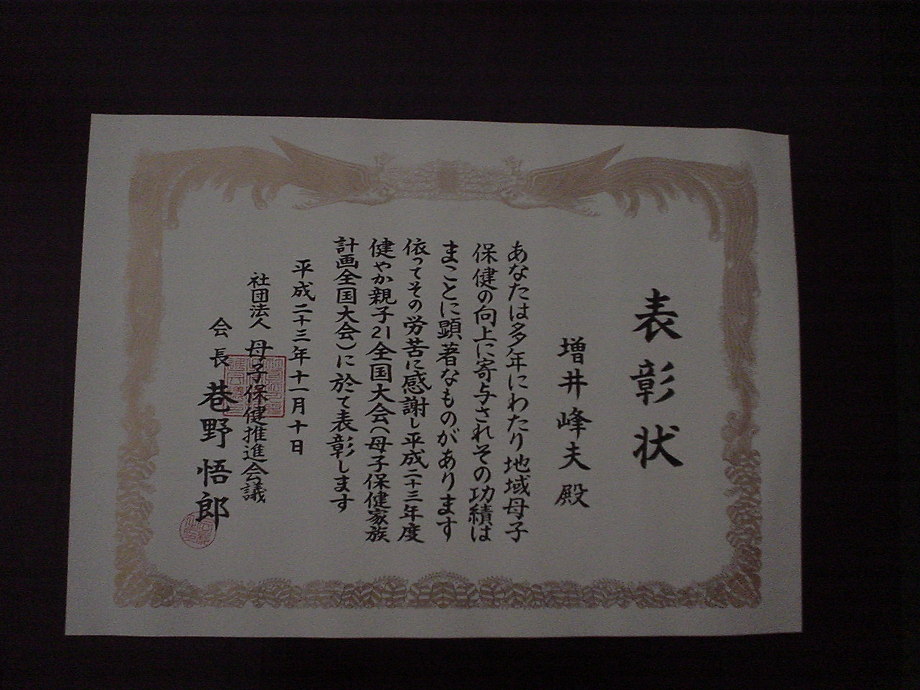 表彰状
増井峰夫殿
あなたは多年にわたり地域母子
保健の向上に寄与されその功績は
まことに顕著なものがあります
依ってその労苦に感謝し平成二十三年度
健やか親子21全国大会(母子保健家族
計画全国大会)に於て表彰します
平成二十三年十一月十日
社団法人 母子保健推進会議
会長 巷野悟郎